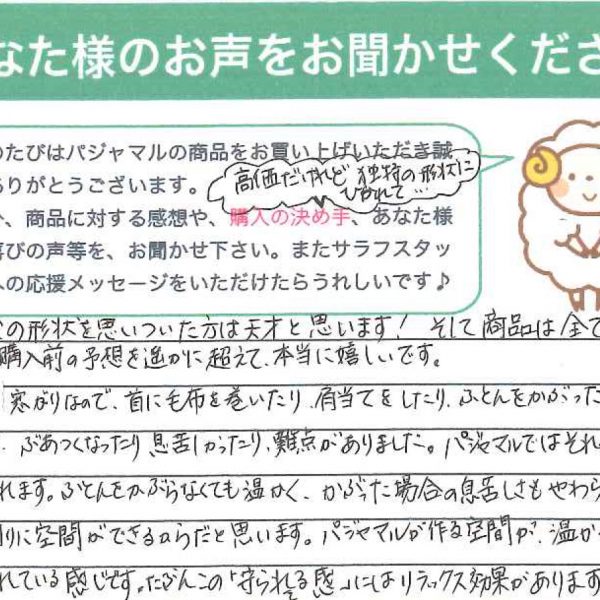 なた様のお声をお聞かせくださ
のたびはパジャマルの商品をお買い上げいただき誠
ありがとうございます。
高価だけれど 独特の形状に
ひかれて…
、商品に対する感想や、購入の決め手、あなた様
喜びの声等を、お聞かせ下さい。またサラフスタッ
への応援メッセージをいただけたらうれしいです♪
の形状を思いついた方は天才と思います! そして商品は全て
購入前の予想を遥かに超えて、本当に嬉しいです。
なので、首に毛布を巻いたり、肩当てをしたり、ふとんをかぶった
、ぶあつくなったり息苦しかったり、難点がありました。パジャマルではそれ
れます。ふとんをかぶらなくても温かく、かぶった場合の息苦しさもやわら
りに空間ができるからだと思います。パジャマルが作る空間が、温か
れている感じです。たぶんこの「守られてる感」にはリラックス効果があります